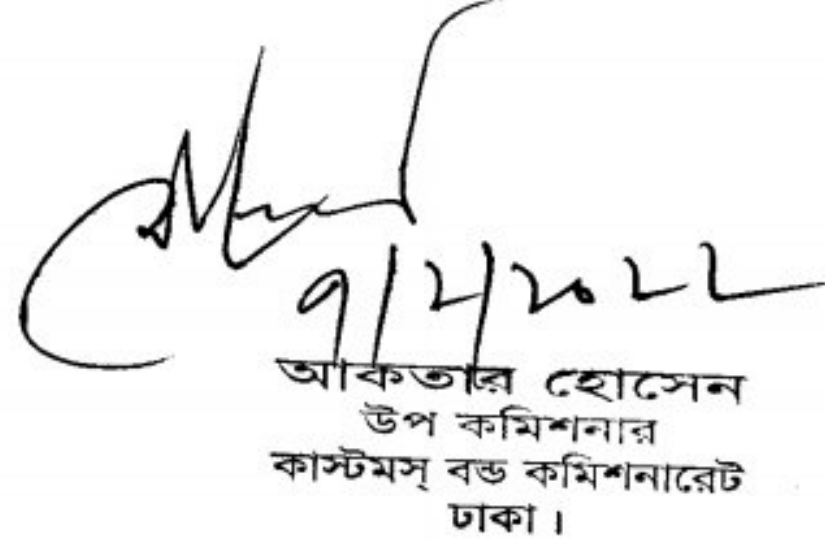 ৭/২/২০২২
আকতার হোসেন
উপ কমিশনার
কাস্টমস্ বন্ড কমিশনারেট
ঢাকা।